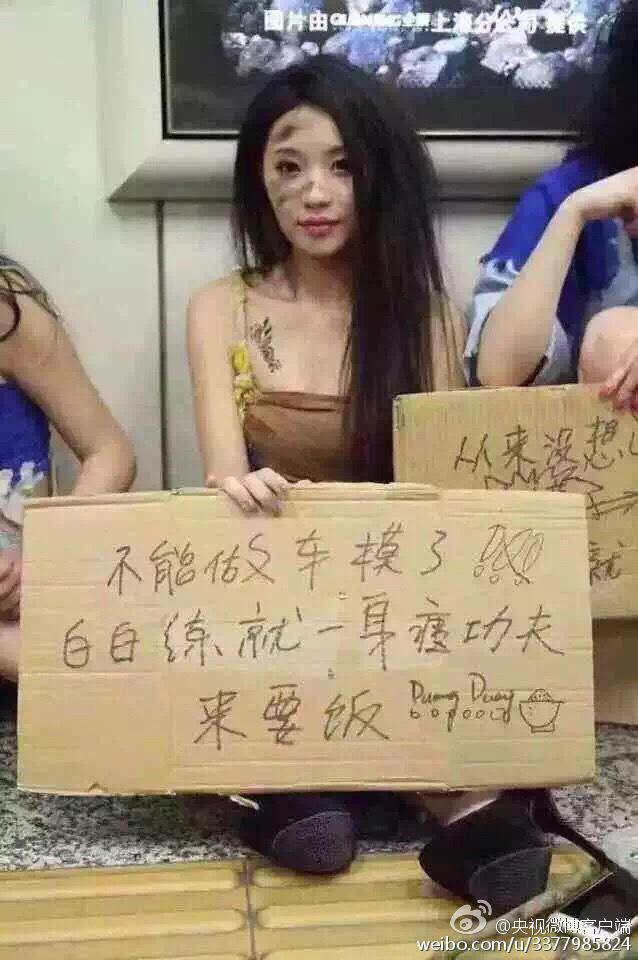 图片由 上海分公司 提供
从来没想
就
不能做车模了
白白练就一身 功夫
来要饭 Duang Duang
@央视微博客户端
weibo.com/u/3377985824